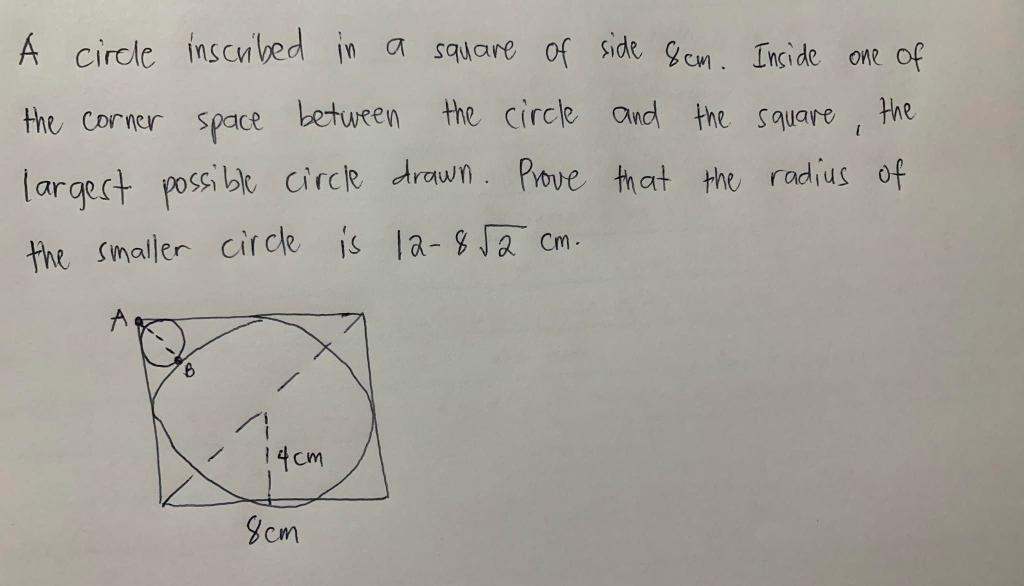 A circle inscribed in a square of side 8cm. Inside one of
the corner space between the circle and the square, the
largest possible circle drawn. Prove that the radius of
the smaller circle is 12-8√2 cm.
A
B
4cm
8cm